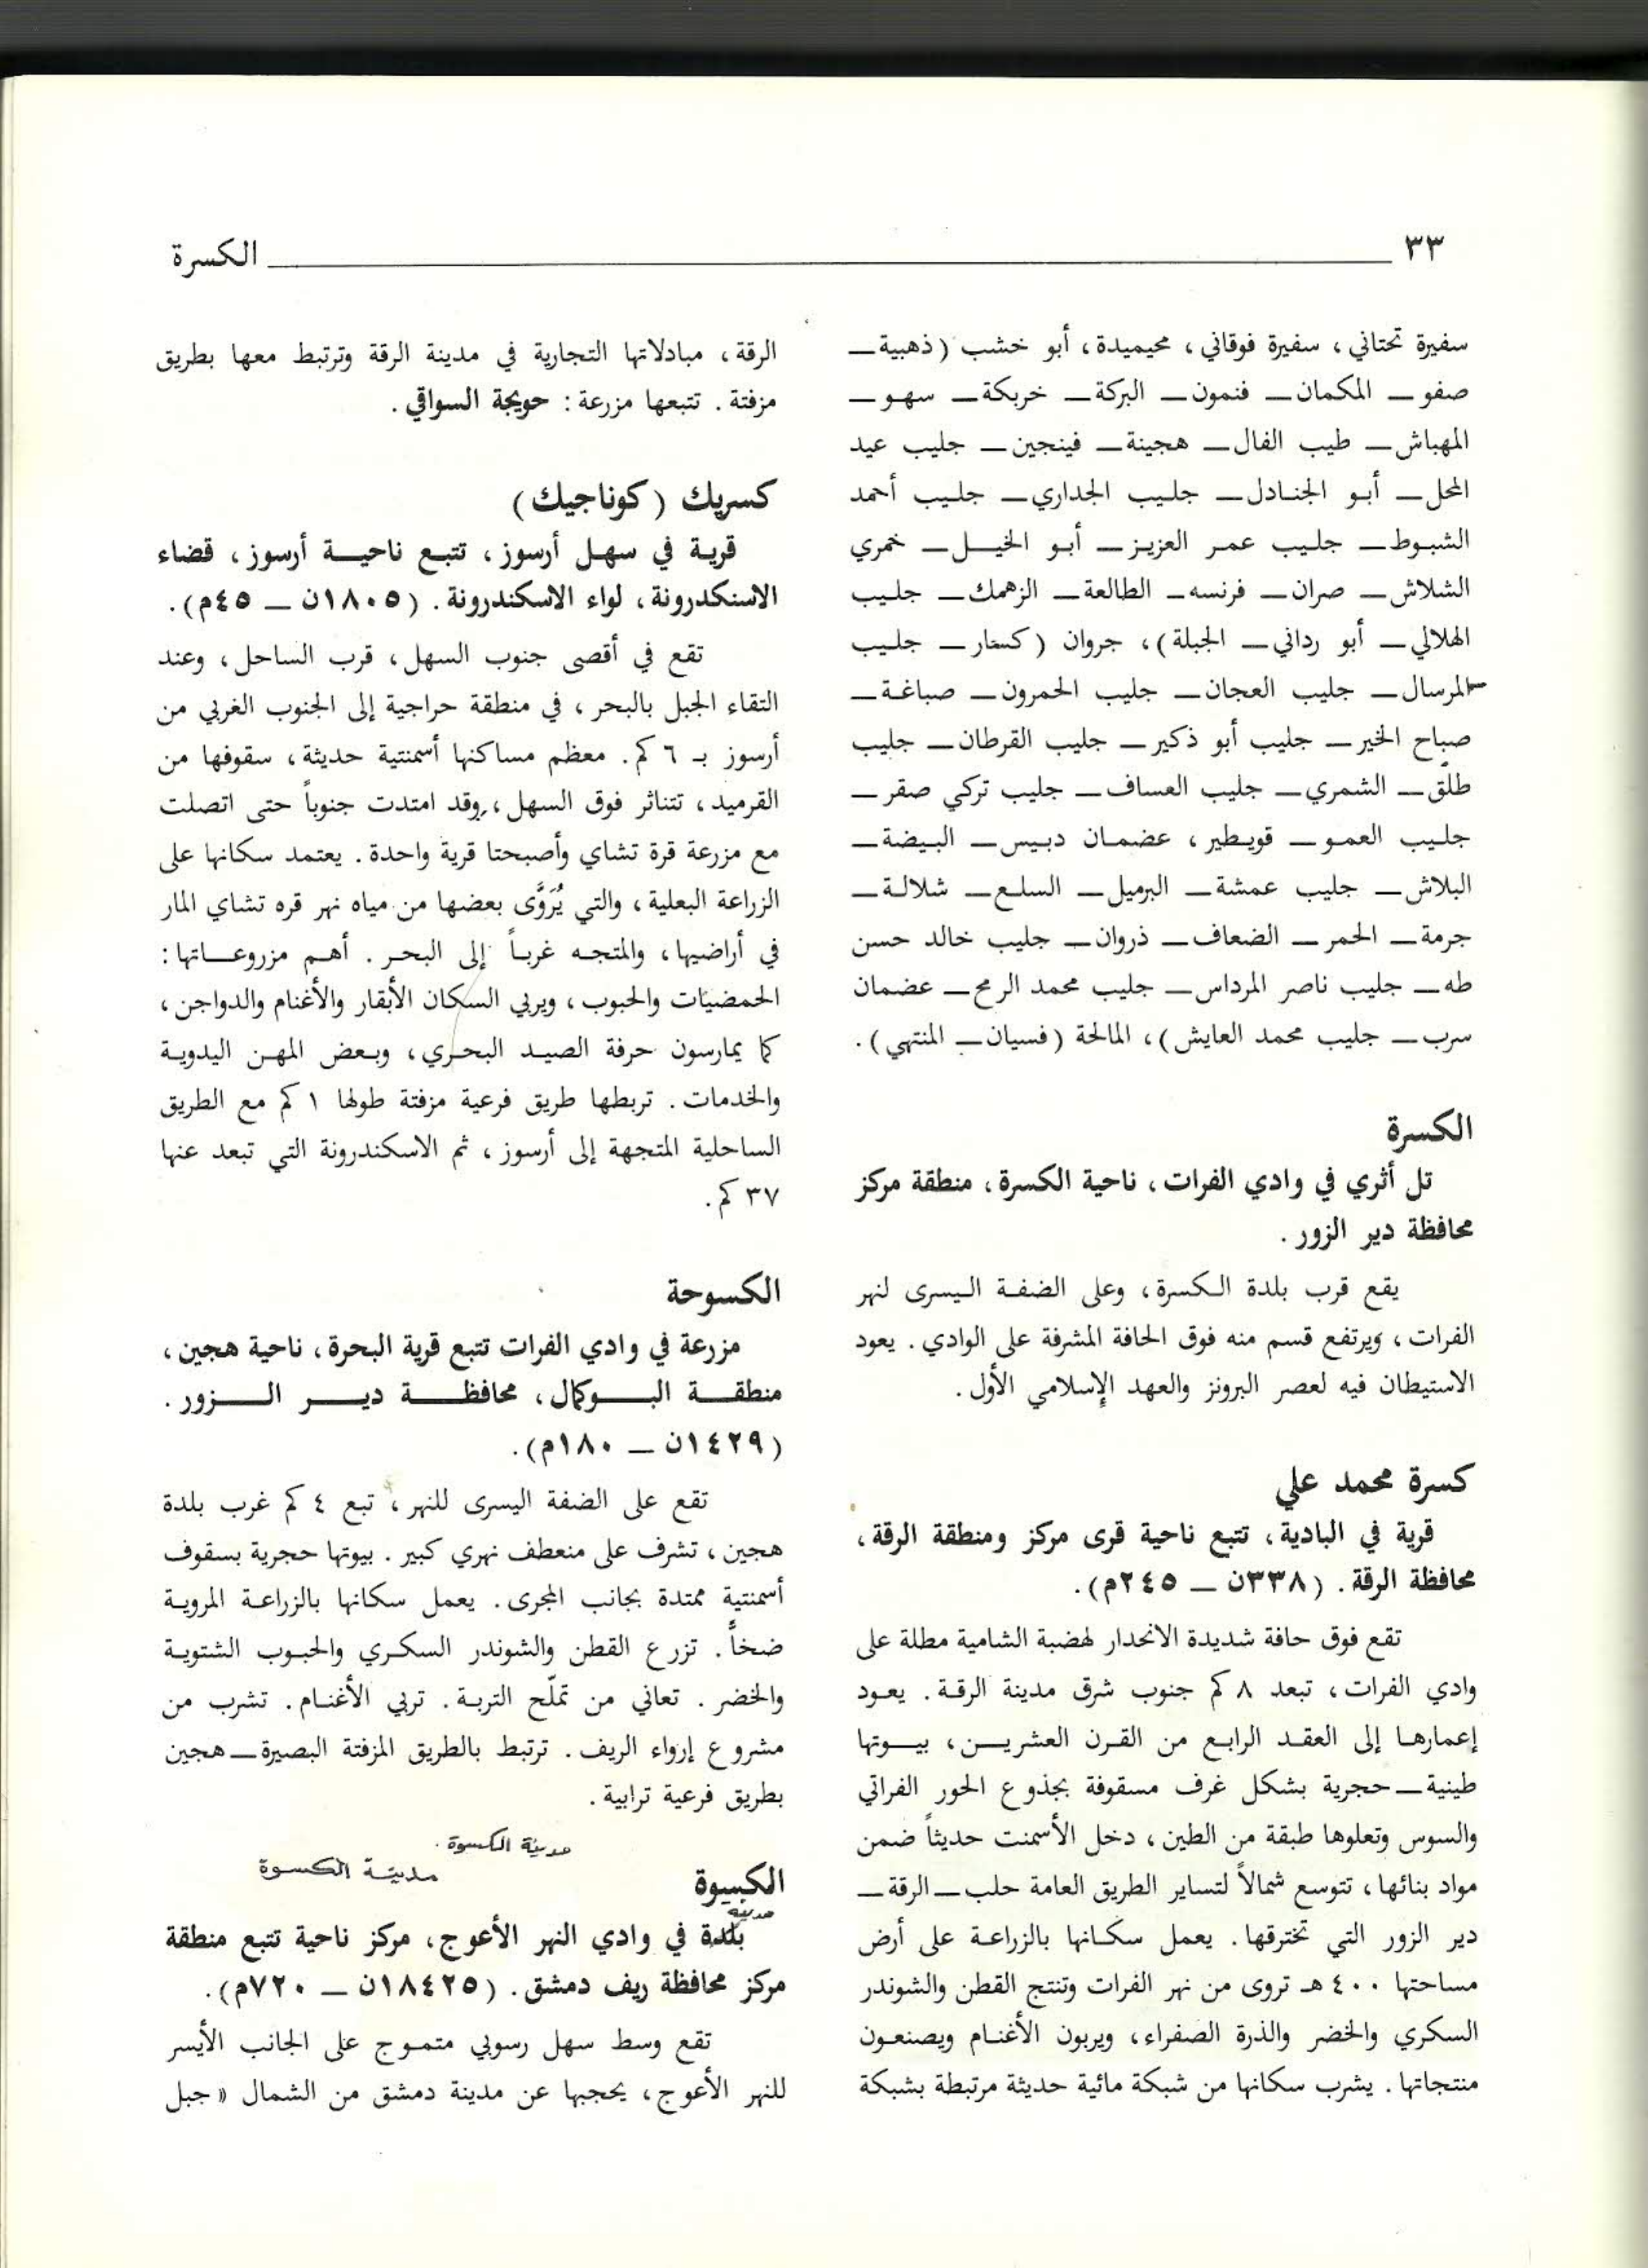 ٣٣ الكسرة
سفيرة تحتاني، سفيرة فوقاني، محيميدة، أبو خشب (ذهبية ــ
صفو ــ المكمان ــ فنمون ــ البركة ــ خربكة ــ سهو ــ
المهباش ــ طيب الفال ــ هجينة ــ فينجين ــ جليب عيد
المحل ــ أبو الجنادل ــ جليب الجداري ــ جليب أحمد
الشبوط ــ جليب عمر العزيز ــ أبو الخيل ــ خمري
الشلاش ــ صران ــ فرنسه ــ الطالعة ــ الزهمك ــ جليب
الهلالي ــ أبو رداني ــ الجبلة)، جروان (كسار ــ جليب
المرسال ــ جليب العجان ــ جليب الحمرون ــ صباغة ــ
صباح الخير ــ جليب أبو ذكير ــ جليب القرطان ــ جليب
طلق ــ الشمري ــ جليب العساف ــ جليب تركي صقر ــ
جليب العمو ــ قويطير، عضمان دبيس ــ البيضة ــ
البلاش ــ جليب عمشة ــ البرميل ــ السلع ــ شلالة ــ
جرمة ــ الحمر ــ الضعاف ــ ذروان ــ جليب خالد حسن
طه ــ جليب ناصر المرداس ــ جليب محمد الرمح ــ عضمان
سرب ــ جليب محمد العايش)، المالحة (فسيان ــ المنتهي).
الكسرة
تل أثري في وادي الفرات، ناحية الكسرة، منطقة مركز
محافظة دير الزور.
يقع قرب بلدة الكسرة، وعلى الضفة اليسرى لنهر
الفرات، ويرتفع قسم منه فوق الحافة المشرفة على الوادي. يعود
الاستيطان فيه لعصر البرونز والعهد الإسلامي الأول.
كسرة محمد علي
قرية في البادية، تتبع ناحية قرى مركز ومنطقة الرقة،
محافظة الرقة. (٣٣٨ن ــ ٢٤٥م).
تقع فوق حافة شديدة الانحدار لهضبة الشامية مطلة على
وادي الفرات، تبعد ٨ كم جنوب شرق مدينة الرقة. يعود
إعمارها إلى العقد الرابع من القرن العشرين، بيوتها
طينية ــ حجرية بشكل غرف مسقوفة بجذوع الحور الفراتي
والسوس وتعلوها طبقة من الطين، دخل الأسمنت حديثاً ضمن
مواد بنائها، تتوسع شمالاً لتساير الطريق العامة حلب ــ الرقة ــ
دير الزور التي تخترقها. يعمل سكانها بالزراعة على أرض
مساحتها ٤٠٠ هـ تروى من نهر الفرات وتنتج القطن والشوندر
السكري والخضر والذرة الصفراء، ويربون الأغنام ويصنعون
منتجاتها. يشرب سكانها من شبكة مائية حديثة مرتبطة بشبكة
الرقة، مبادلاتها التجارية في مدينة الرقة وترتبط معها بطريق
مزفتة. تتبعها مزرعة: حويجة السواقي.
كسريك (كوناجيك)
قرية في سهل أرسوز، تتبع ناحية أرسوز، قضاء
الاسنكدرونة، لواء الاسكندرونة. (١٨٠٥ن ــ ٤٥م).
تقع في أقصى جنوب السهل، قرب الساحل، وعند
التقاء الجبل بالبحر، في منطقة حراجية إلى الجنوب الغربي من
أرسوز بـ ٦ كم. معظم مساكنها أسمنتية حديثة، سقوفها من
القرميد، تتناثر فوق السهل، وقد امتدت جنوباً حتى اتصلت
مع مزرعة قرة تشاي وأصبحتا قرية واحدة. يعتمد سكانها على
الزراعة البعلية، والتي يُرَوَّى بعضها من مياه نهر قره تشاي المار
في أراضيها، والمتجه غرباً إلى البحر. أهم مزروعاتها:
الحمضيات والحبوب، ويربي السكان الأبقار والأغنام والدواجن،
كما يمارسون حرفة الصيد البحري، وبعض المهن اليدوية
والخدمات. تربطها طريق فرعية مزفتة طولها ١ كم مع الطريق
الساحلية المتجهة إلى أرسوز، ثم الاسكندرونة التي تبعد عنها
٣٧ كم.
الكسوحة
مزرعة في وادي الفرات تتبع قرية البحرة، ناحية هجين،
منطقة البوكمال، محافظة دير الزور.
(١٤٢٩ن ــ ١٨٠م).
تقع على الضفة اليسرى للنهر، تبع ٤ كم غرب بلدة
هجين، تشرف على منعطف نهري كبير. بيوتها حجرية بسقوف
أسمنتية ممتدة بجانب المجرى. يعمل سكانها بالزراعة المروية
ضخاً. تزرع القطن والشوندر السكري والحبوب الشتوية
والخضر. تعاني من تملّح التربة. تربي الأغنام. تشرب من
مشروع إرواء الريف. ترتبط بالطريق المزفتة البصيرة ــ هجين
بطريق فرعية ترابية.
مدينة الكسوة.
مدينة الكسوة
الكسوة
مدينة
بلدة في وادي النهر الأعوج، مركز ناحية تتبع منطقة
مركز محافظة ريف دمشق. (١٨٤٢٥ن ــ ٧٢٠م).
تقع وسط سهل رسوبي متموج على الجانب الأيسر
للنهر الأعوج، يحجبها عن مدينة دمشق من الشمال «جبل